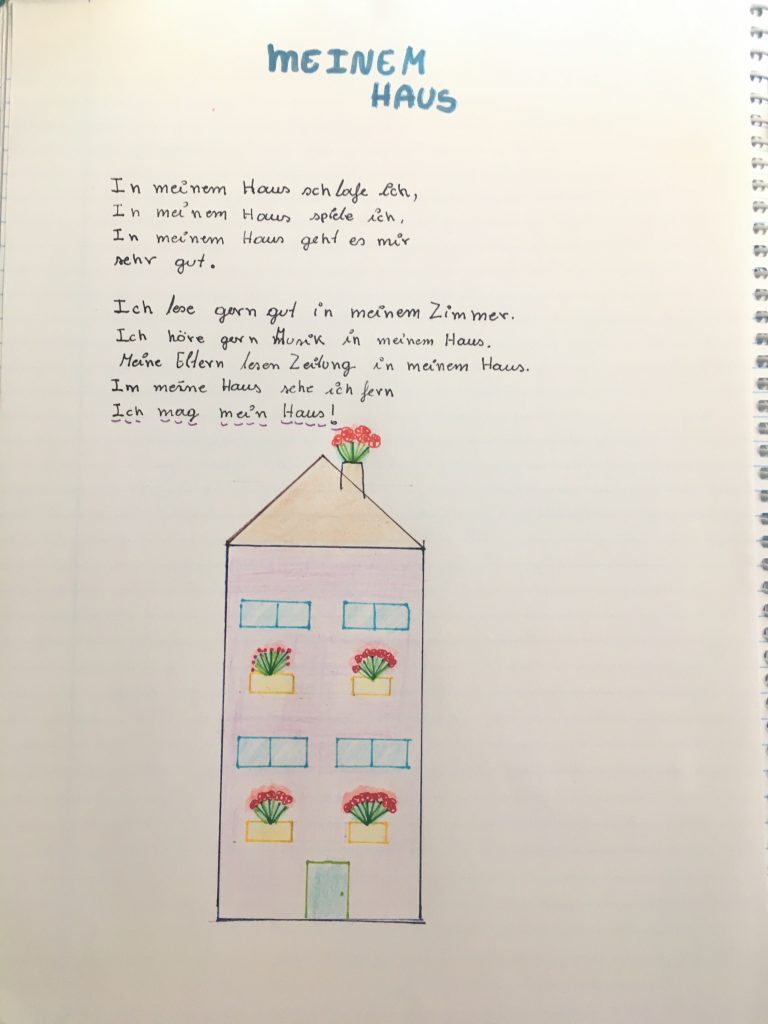 MEINEM
HAUS
In meinem Haus schlafe ich,
In meinem Haus spiele ich,
In meinem Haus geht es mir
sehr gut.
Ich lese gern gut in meinem Zimmer.
Ich höre gern Musik in meinem Haus.
Meine Eltern lesen Zeitung in meinem Haus.
Im meine Haus sehe ich fern
Ich mag mein Haus!